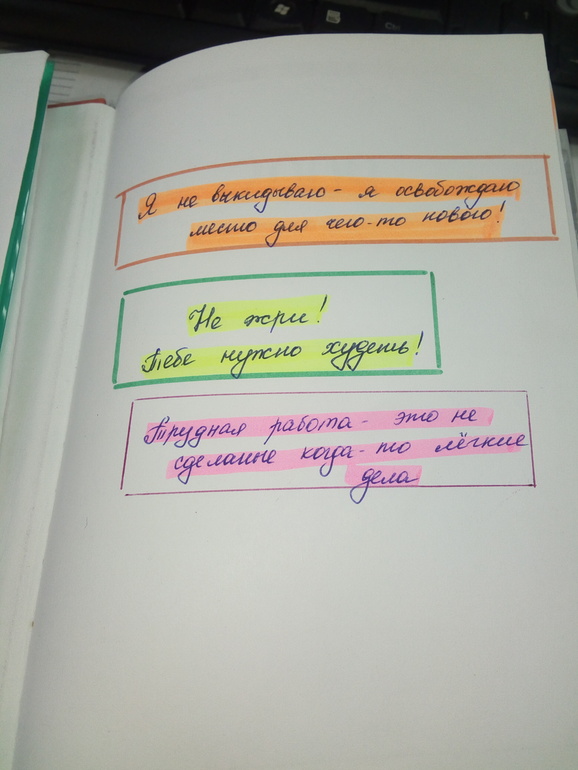 Я не выкидываю - я освобождаю
место для чего-то нового!
Не жри!
Тебе нужно худеть!
Трудная работа - это не
сделанные когда-то лёгкие
дела